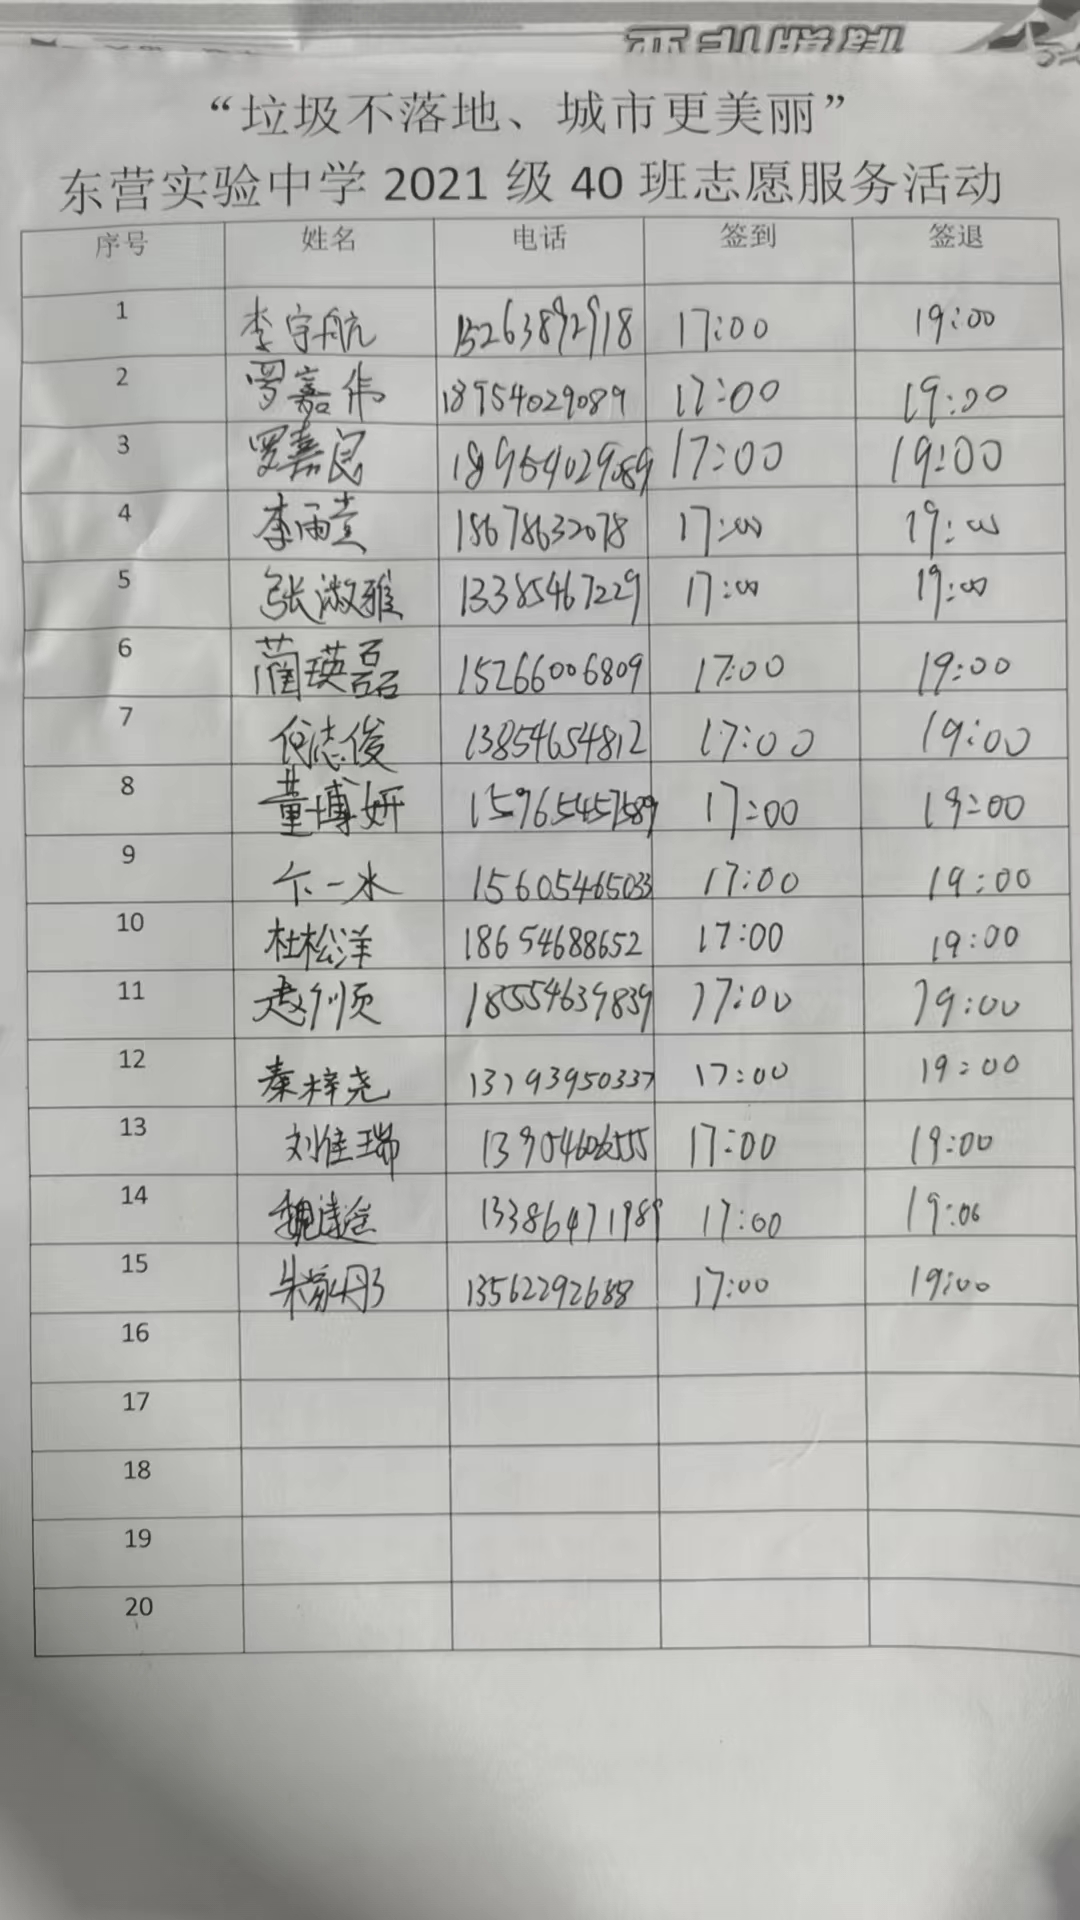 “垃圾不落地、城市更美丽”
东营实验中学 2021 级 40 班志愿服务活动
序号 姓名 电话 签到 签退
1 李宇航 15263892918 17:00 19:00
2 罗嘉伟 18954029089 17:00 19:00
3 罗嘉良 18954029089 17:00 19:00
4 李雨堂 18678632078 17:00 19:00
5 张淑雅 13385467229 17:00 19:00
6 蔺瑛磊 15266006809 17:00 19:00
7 何志俊 13854654812 17:00 19:00
8 董博妍 15965457589 17:00 19:00
9 卞一水 15605465033 17:00 19:00
10 杜松洋 18654688652 17:00 19:00
11 赵顺 18554639839 17:00 19:00
12 秦梓尧 13793950337 17:00 19:00
13 刘佳瑞 13905460655 17:00 19:00
14 13386471989 17:00 19:00
15 13562292688 17:00 19:00
16
17
18
19
20